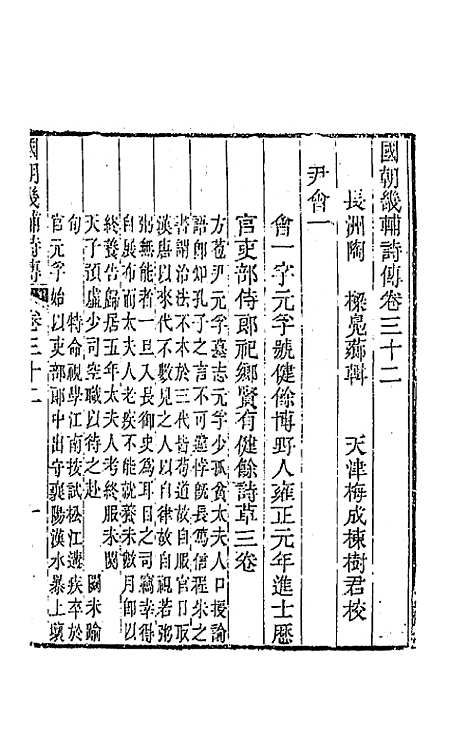 國朝畿輔詩傳卷三十二
長洲陶　樑鳧薌輯　　天津梅成棟樹君校
尹會一
會一字元孚號健餘博野人雍正元年進士歷
官吏部侍郎祀鄉賢有健餘詩草三卷
方苞尹元孚墓志元孚少孤貧太夫人口授論
語卽知孔子之言不可違悖旣長篤信程朱之
書謂治法不本於三代皆苟道故自服官日取
漢唐以來代不數見之人以自律故自視若弼
弼無能者一旦入長御史為耳目之司竊幸得
自展布而太夫人老疾不能就養未數月卽以
終養告歸居五年太夫人考終服未闋
天子預虛少司空職以待之赴　闕未踰
旬　特命視學江南按試松江遘疾卒於
官元孚始以吏部郎中出守襄陽漢水暴上壞
國朝畿輔詩傳　卷三十二　一